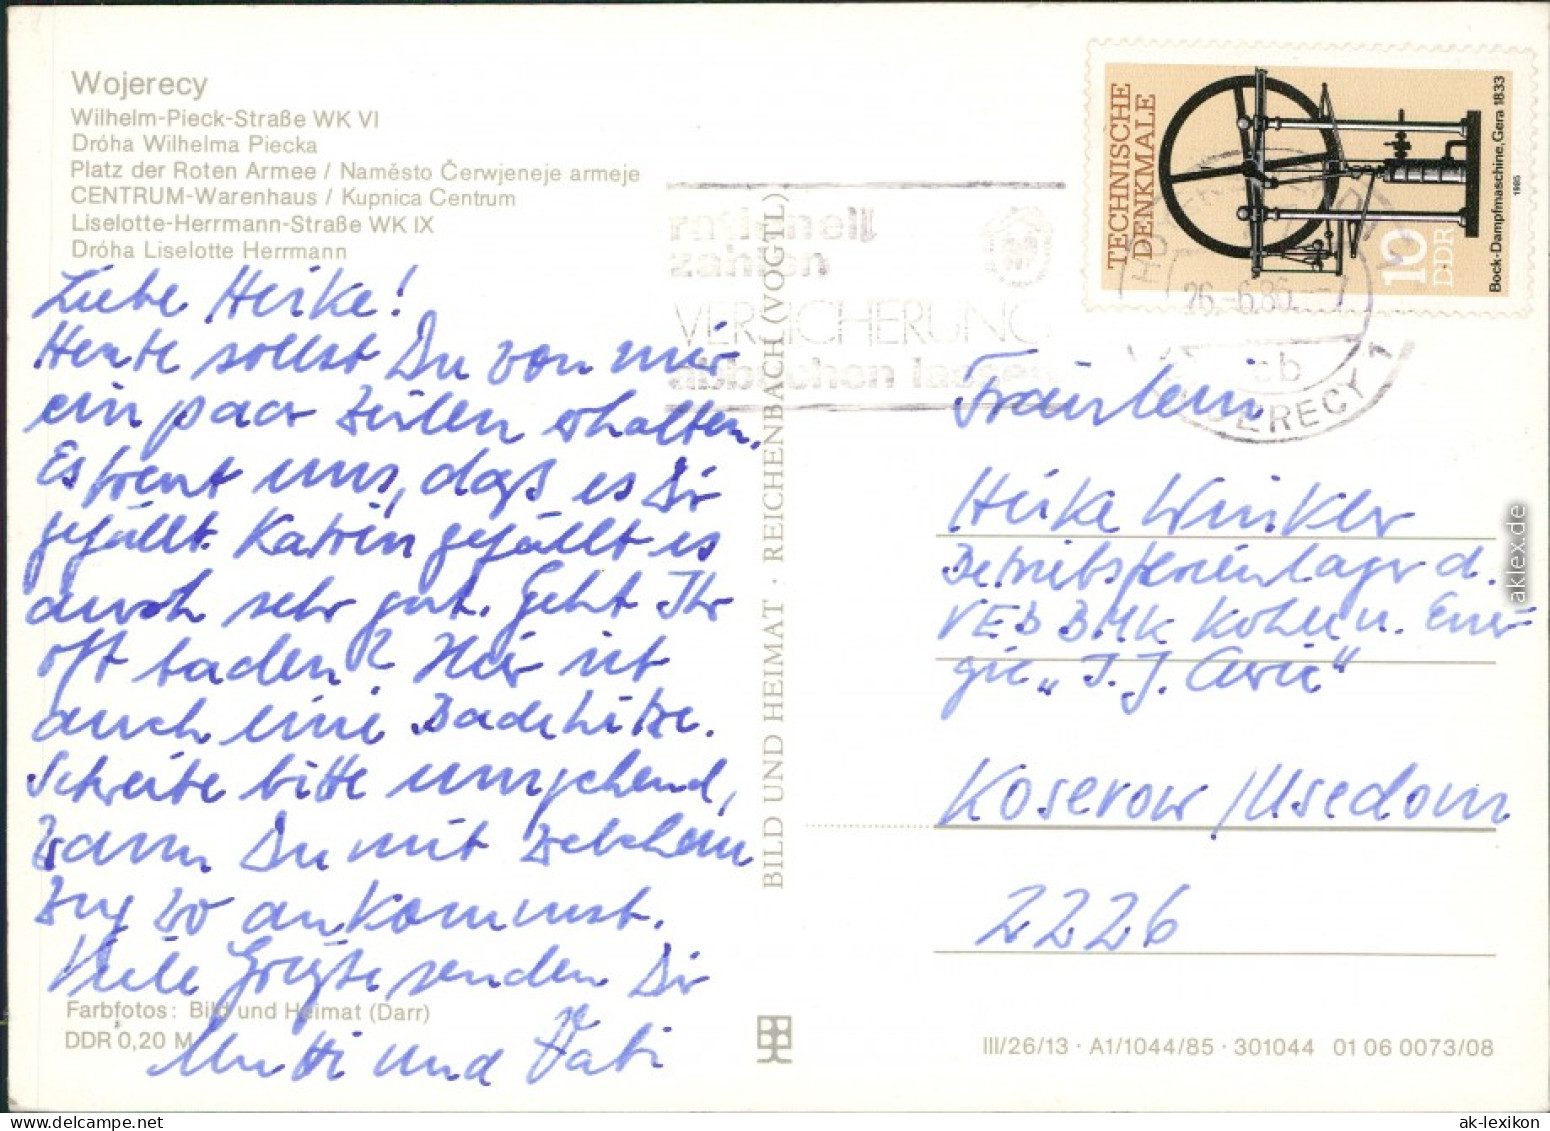 Wojerecy
Wilhelm-Pieck-Straße WK VI
Dróha Wilhelma Piecka
Platz der Roten Armee / Naměsto Čerwjeneje armeje
CENTRUM-Warenhaus / Kupnica Centrum
Liselotte-Herrmann-Straße WK IX
Dróha Liselotte Herrmann
Liebe Heike!
Heute sollst Du von mir
ein paar Zeilen erhalten.
Es freut uns, daß es Dir
gefällt. Katrin gefällt es
auch sehr gut. Geht Ihr
oft baden? Hier ist
auch eine Badehitze.
Schreibe bitte umgehend,
wann Du mit welchem
Zug wo ankommst.
Viele Grüße senden Dir
Mutti und Vati
Farbfotos: Bild und Heimat (Darr)
DDR 0,20 M
BILD UND HEIMAT · REICHENBACH (VOGTL)
rationell
zahlen
VERSICHERUNG
abbuchen lassen
TECHNISCHE
DENKMALE
10
DDR
Bock-Dampfmaschine, Gera 1833
1985
26.-6.86.--
cb
WOJERECY 1
Fräulein
Heike Winkler
Betriebsferienlager d.
VEB BMK Kohle u. Ener=
gie „I. J. Curie“
Koserow / Usedom
2226
III/26/13 · A1/1044/85 · 301044 01 06 0073/08
aklex.de
ak-lexikon